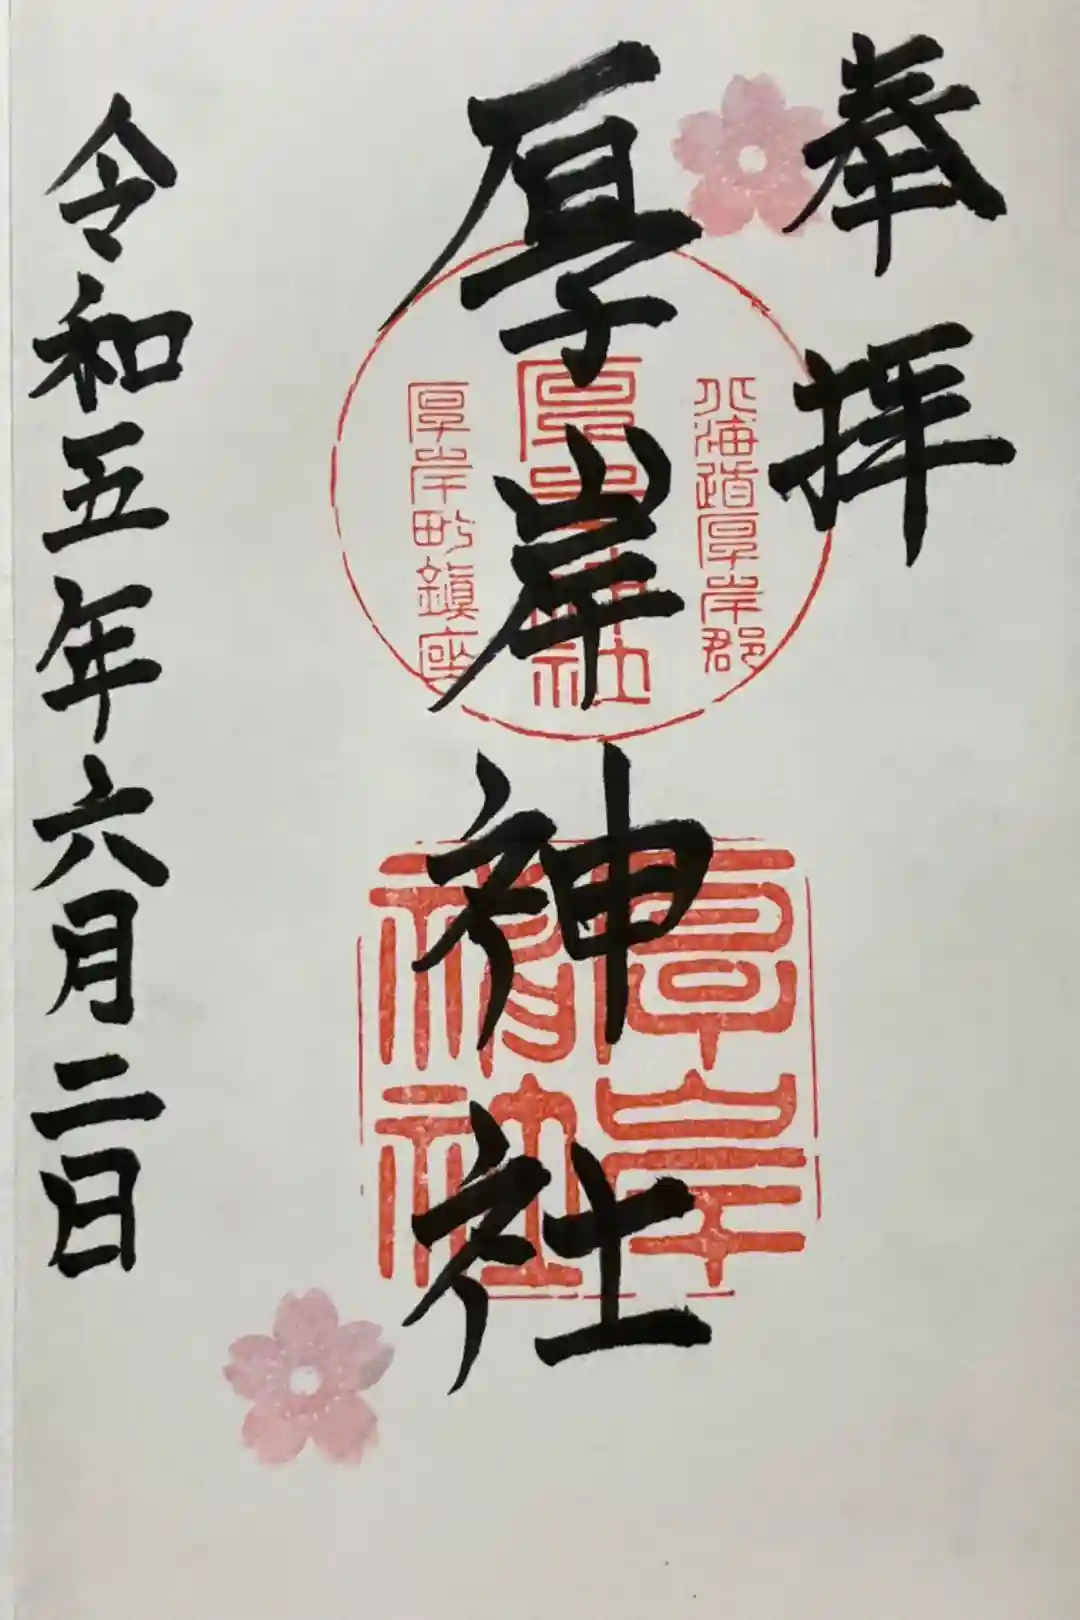 奉拝
北海道厚岸郡
厚岸神社
厚岸神社
厚岸町鎮座
厚岸神社
令和五年六月二日